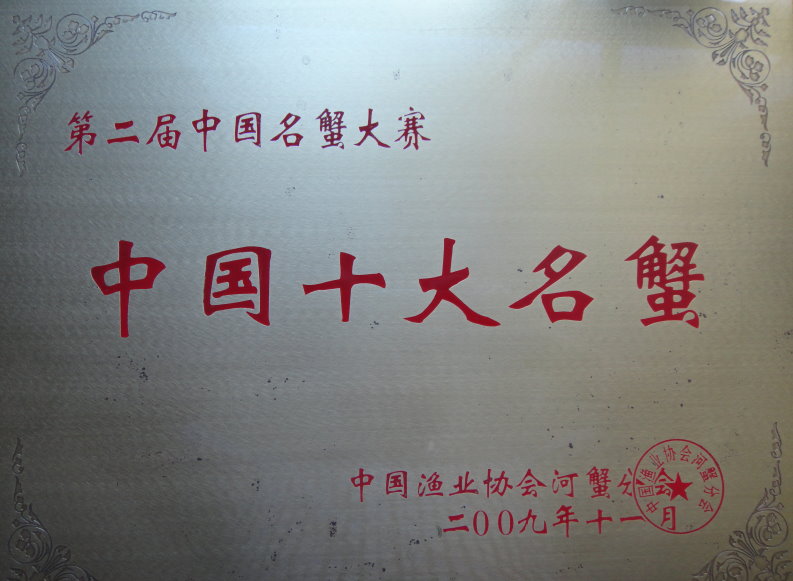 第二届中国名蟹大赛
中国十大名蟹
中国渔业协会河蟹分会
二00九年十一月
中国渔业协会河蟹分会